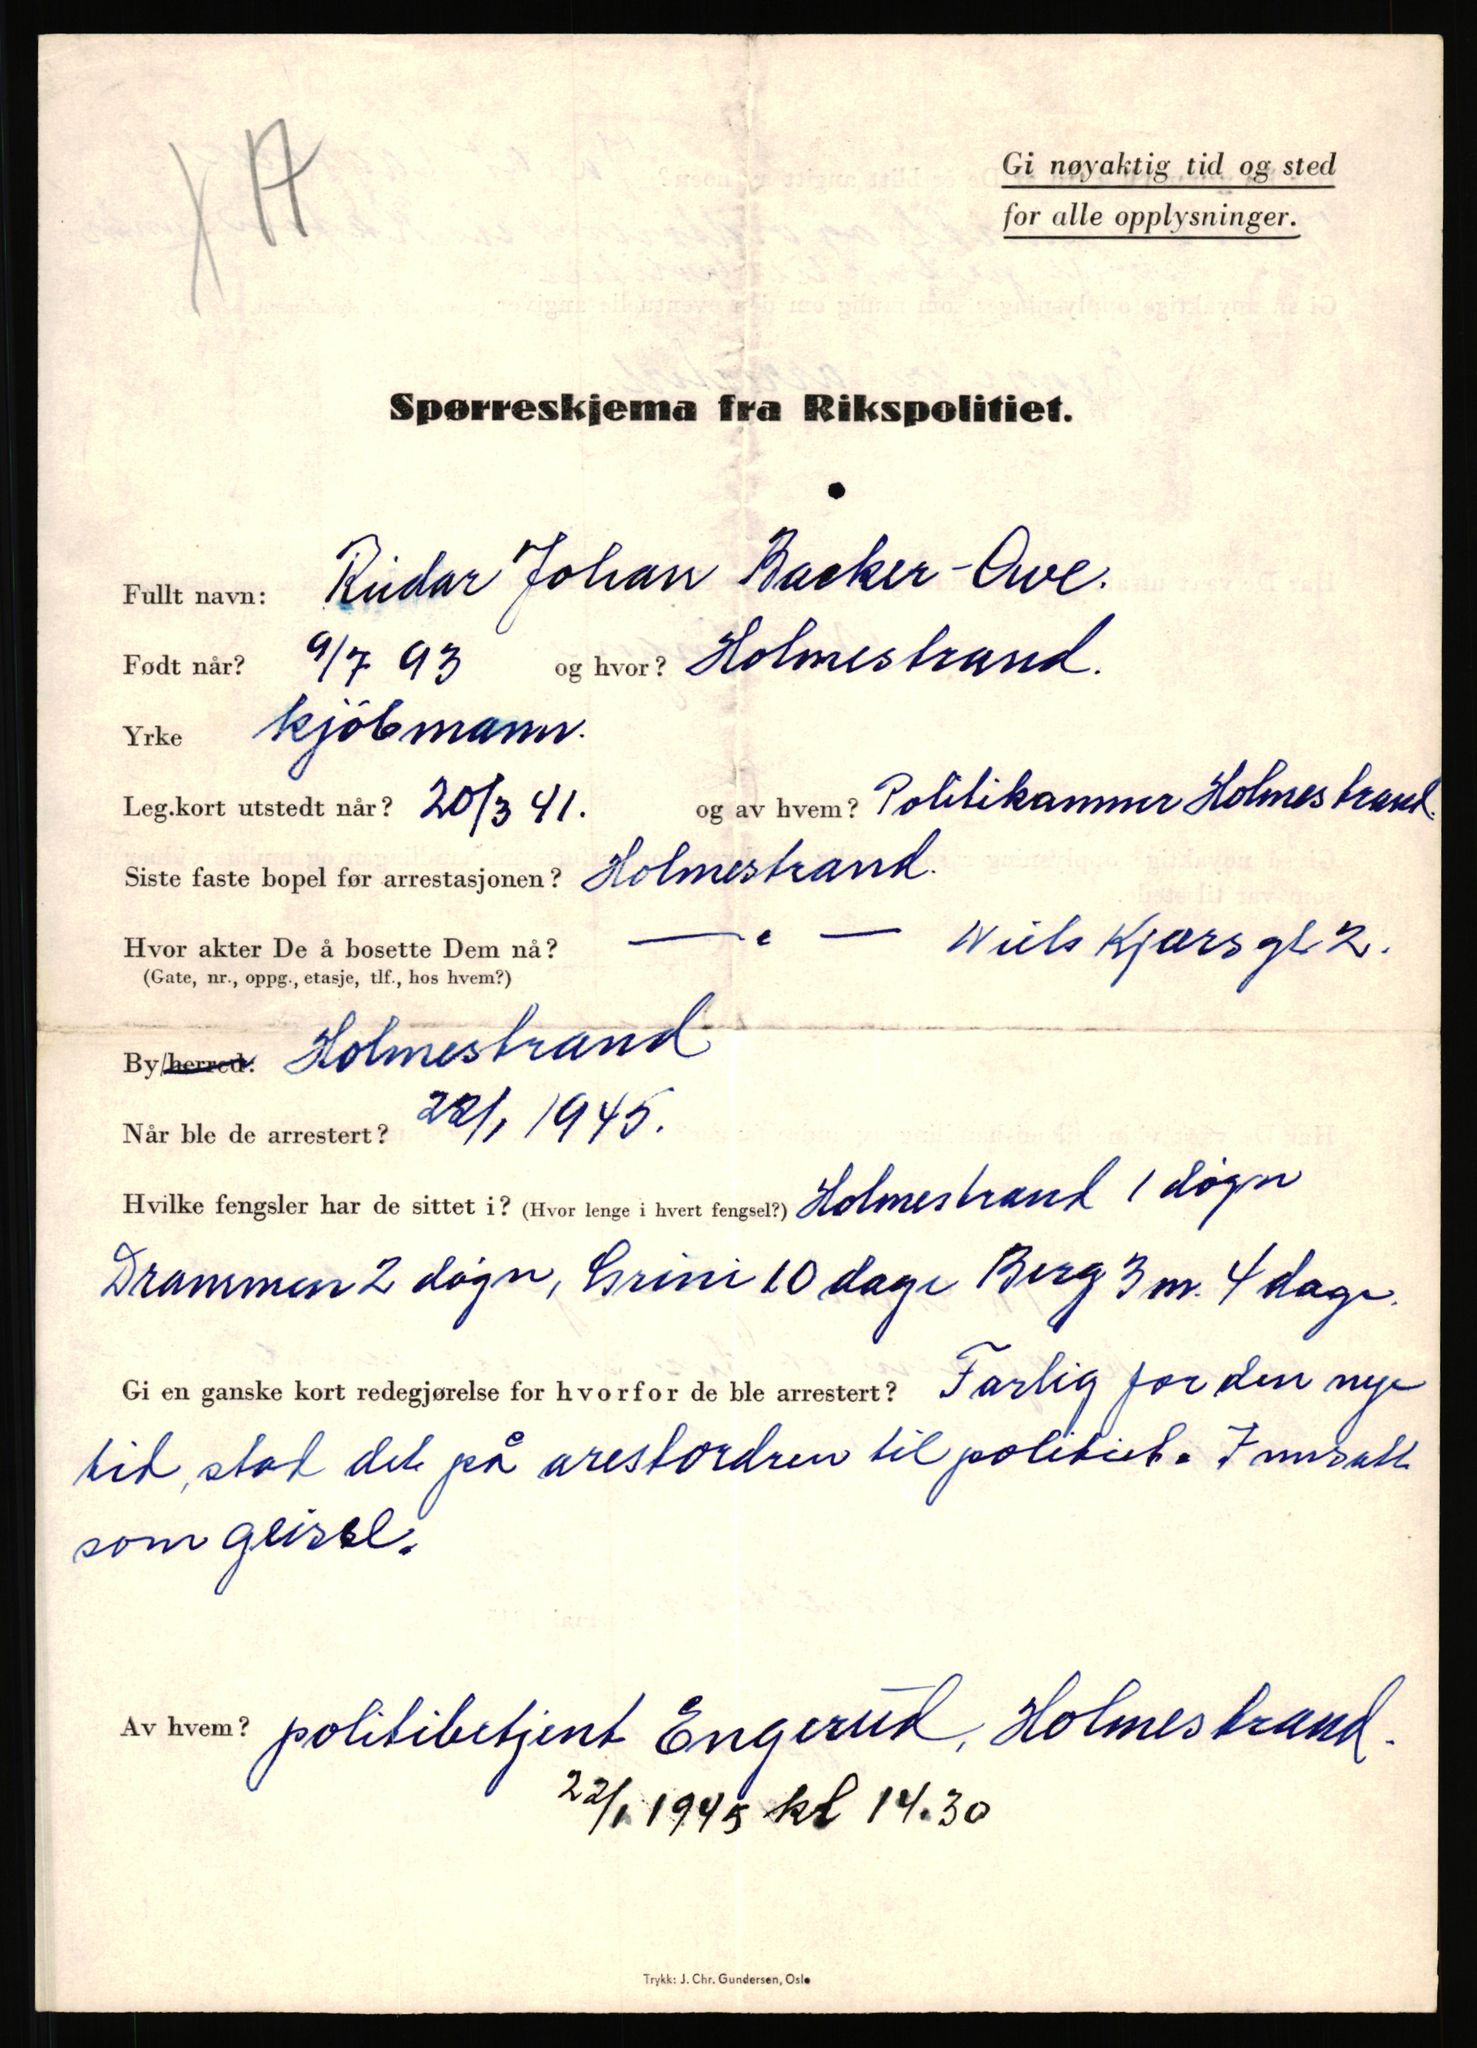 XA
Gi nøyaktig tid og sted
for alle opplysninger.
Spørreskjema fra Rikspolitiet.
Fullt navn: Reidar Johan Backer-Owe.
Født når? 9/7 93 og hvor? Holmestrand.
Yrke kjöbmann.
Leg.kort utstedt når? 20/3 41. og av hvem? Politikammer Holmestrand.
Siste faste bopel før arrestasjonen? Holmestrand.
Hvor akter De å bosette Dem nå? — " — Niels Kjærs gt 2.
(Gate, nr., oppg., etasje, tlf., hos hvem?)
By/herred: Holmestrand
Når ble de arrestert? 22/1 1945.
Hvilke fengsler har de sittet i? (Hvor lenge i hvert fengsel?) Holmestrand 1 døgn
Drammen 2 døgn, Grini 10 dage Berg 3 m. 4 dage.
Gi en ganske kort redegjørelse for hvorfor de ble arrestert? Farlig for den nye
tid, stod det på arestordren til politiet. Innsatt
som geisel.
Av hvem? politibetjent Engerud, Holmestrand.
22/1 1945 kl 14.30
Trykk: J. Chr. Gundersen, Oslo